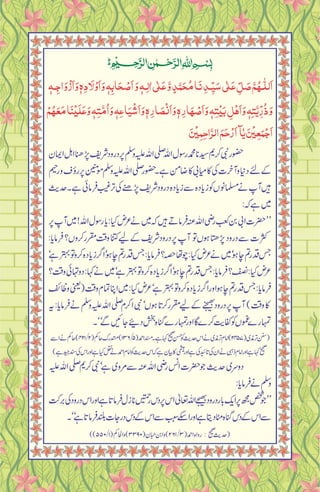 بِسْمِ اللهِ الرَّحْمٰنِ الرَّحِيْمِ
اَللّٰهُمَّ صَلِّ عَلٰى سَيِّدِنَا مُحَمَّدٍ وَّعَلٰى اٰلِهٖ وَاَصْحَابِهٖ وَاَوْلَادِهٖ وَاَزْوَاجِهٖ
وَذُرِّيَّتِهٖ وَاَهْلِ بَيْتِهٖ وَاَصْهَارِهٖ وَاَنْصَارِهٖ وَاَشْيَاعِهٖ وَاُمَّتِهٖ وَعَلَيْنَا مَعَهُمْ
اَجْمَعِيْنَ يَا اَرْحَمَ الرَّاحِمِيْنَ
حضور نبی کریم سیدنا محمد رسول اللہ صلی اللہ علیہ وسلم پر درود شریف پڑھنا اہل ایمان
کے لئے دنیا و آخرت کی کامیابی کا ضامن ہے۔ حضور صلی اللہ علیہ وسلم مومنین پر رؤف و رحیم
ہیں آپ نے مسلمانوں کو زیادہ سے زیادہ درود شریف پڑھنے کی ترغیب فرمائی ہے۔ حدیث
میں ہے کہ:
”حضرت ابی بن کعب رضی اللہ عنہ فرماتے ہیں کہ میں نے عرض کیا: یا رسول اللہ! میں آپ پر
کثرت سے درود پڑھتا ہوں تو آپ پر درود شریف کے لیے کتنا وقت مقرر کروں؟ فرمایا:
جس قدر تم چاہو، میں نے عرض کیا: چوتھا حصہ؟ فرمایا: جس قدر تم چاہو اگر زیادہ کرو تو بہتر ہے، میں نے
عرض کیا: نصف؟ فرمایا: جس قدر تم چاہو اگر زیادہ کرو تو بہتر ہے، میں نے کہا: دو تہائی وقت؟
فرمایا: جس قدر تم چاہو اور اگر زیادہ کرو تو بہتر ہے، میں نے عرض کیا: میں اپنا تمام وقت (یعنی وظائف
کا وقت) آپ پر درود بھیجنے کے لیے مقرر کرتا ہوں‘ نبی اکرم صلی اللہ علیہ وسلم نے فرمایا: یہ
تمہارے غموں کو کفایت کرے گا اور تمہارے گناہ بخش دیئے جائیں گے۔“
دوسری حدیث جو حضرت انس رضی اللہ عنہ سے مروی ہے‘ نبی کریم صلی اللہ علیہ
وسلم نے فرمایا:
”جو شخص مجھ پر ایک بار درود بھیجے اللہ تعالیٰ اس پر دس رحمتیں نازل فرماتا ہے اور درود کی برکت
سے اس کے دس گناہ مٹا دیتا ہے اور اسکے سبب سے اس کے دس درجات بلند فرماتا ہے۔“